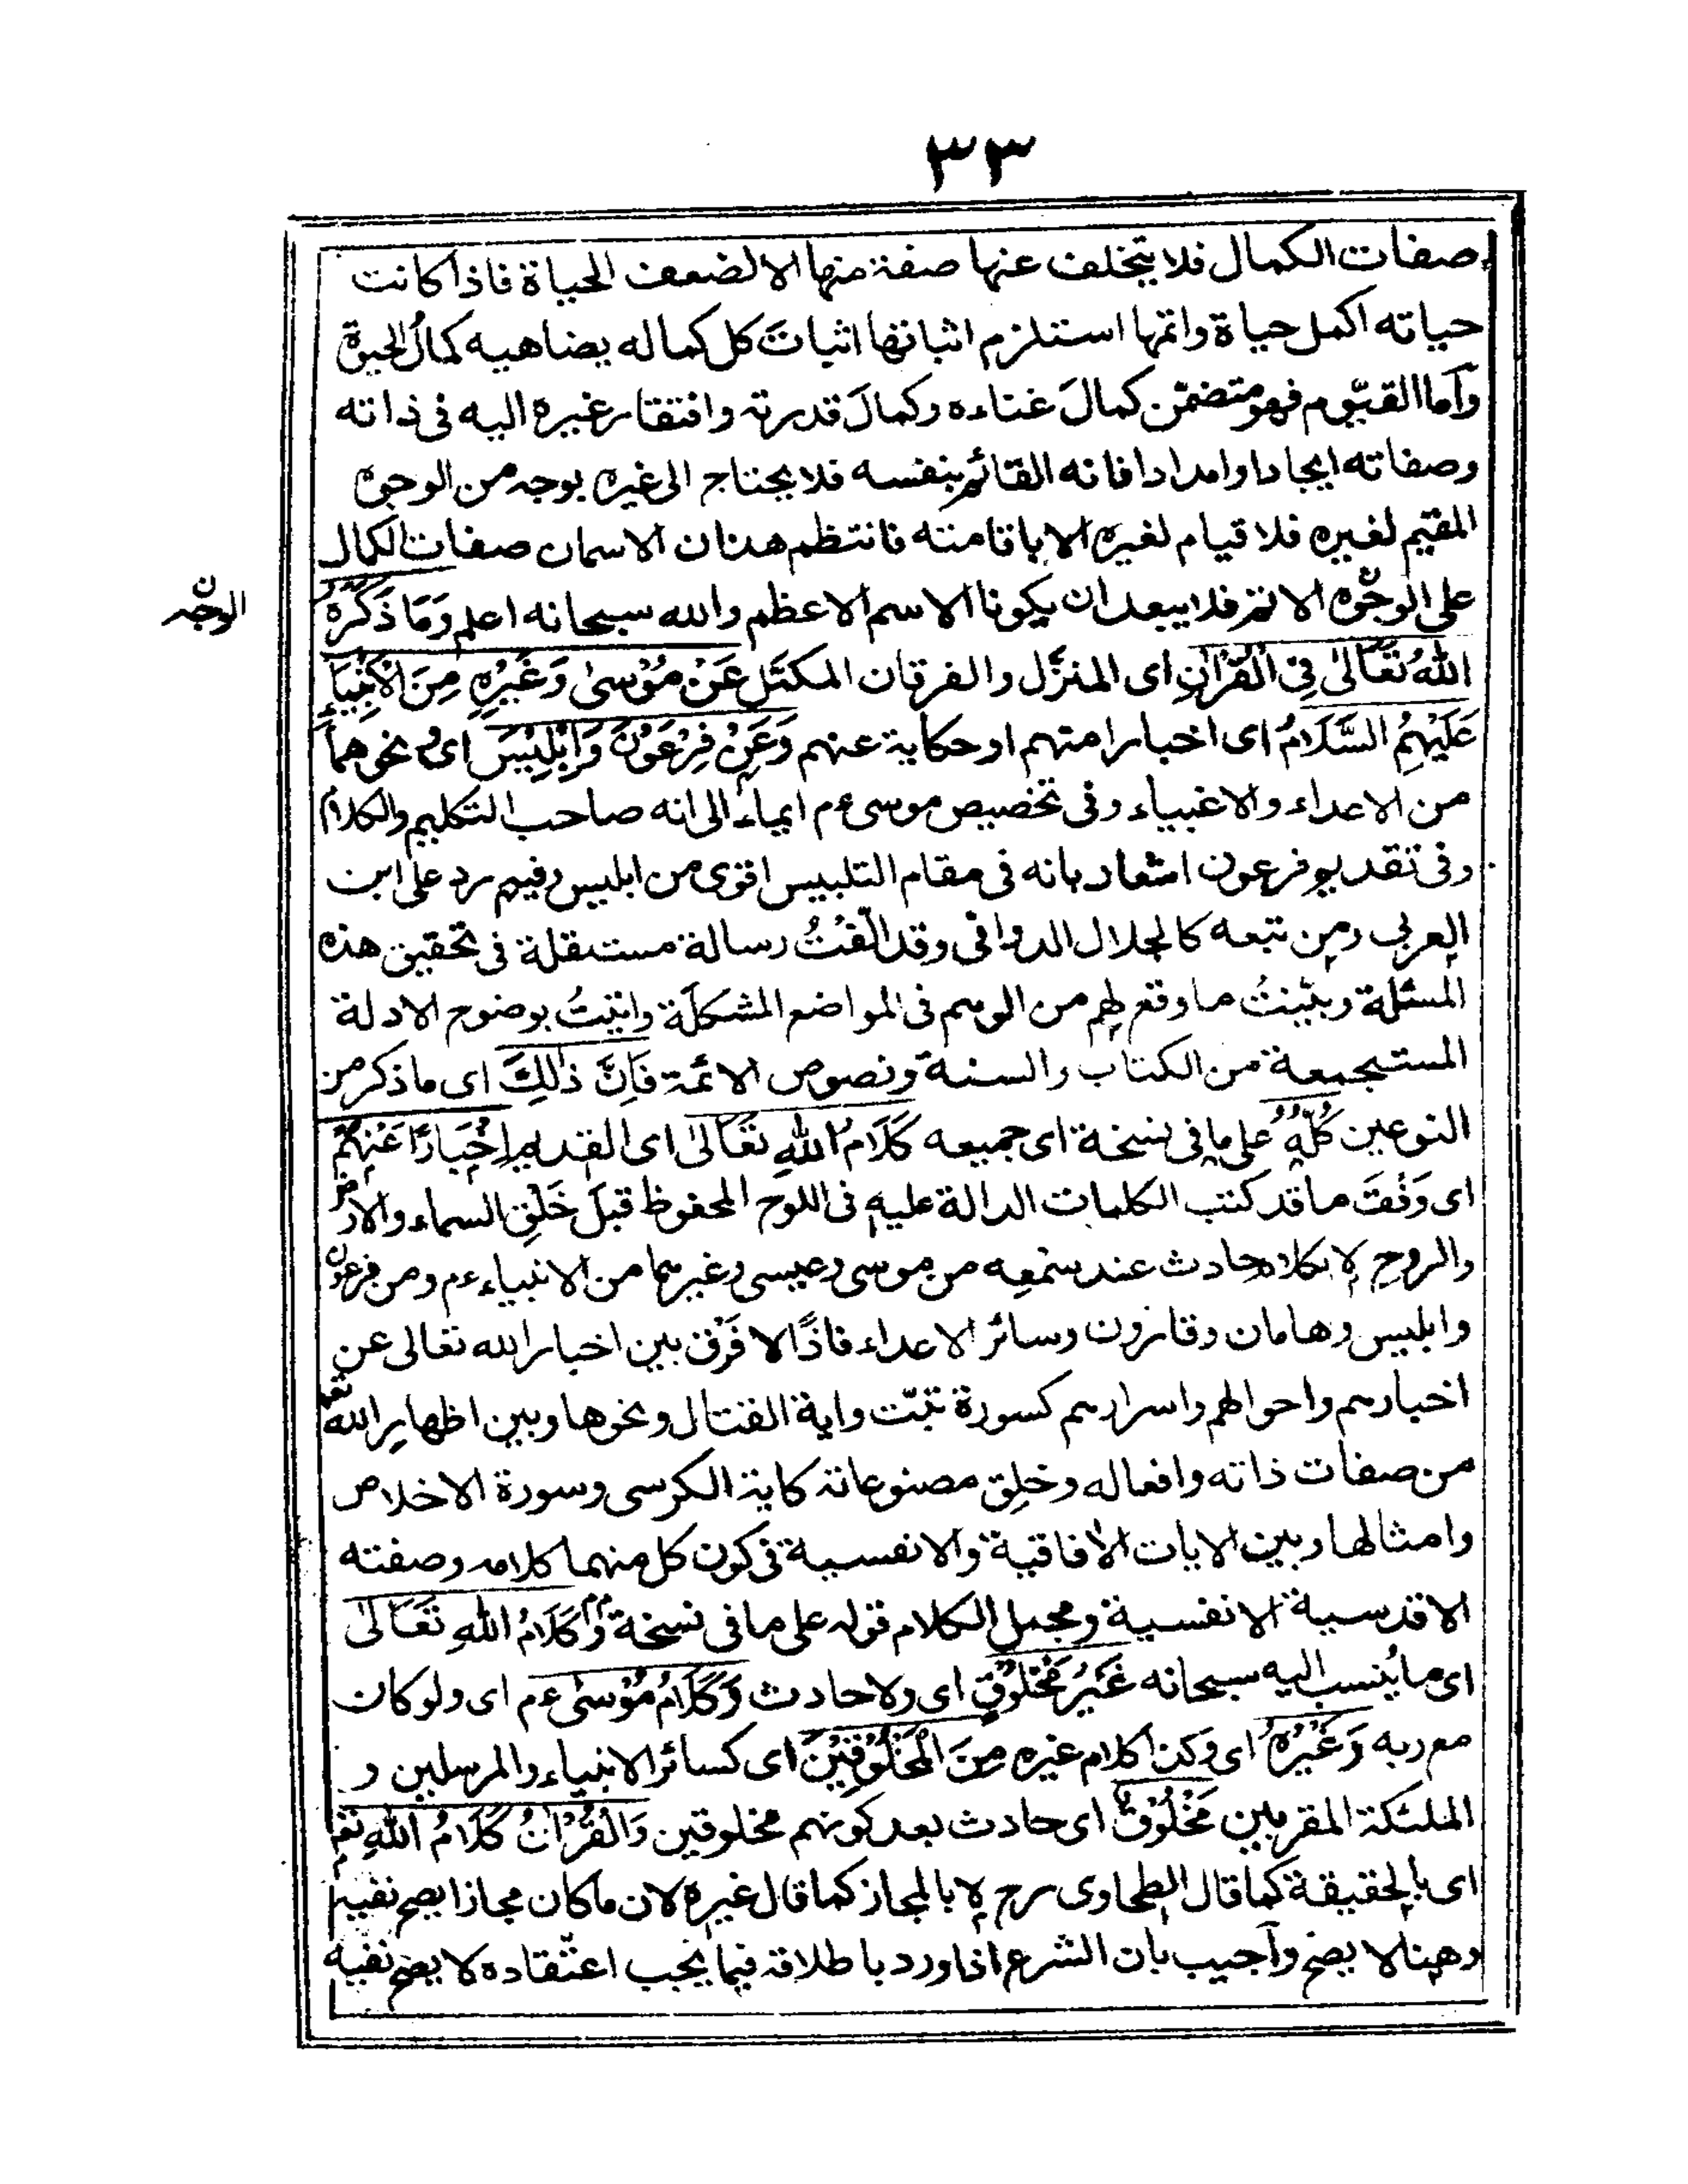 ٣٣
صفات الكمال فلا يتخلف عنها صفة منها الا لضعف الحياة فاذا كانت
حياته اكمل حياة واتمها استلزم اثباتها اثباتَ كل كماله يضاهيه كمالُ الحيوة
وآما القيّوم فهو متضمّن كمالَ غناءه وكمالَ قدرته وافتقار غيره اليه فى ذاته
وصفاته ايجادا وامدادا فانه القائم بنفسه فلا يحتاج الى غيره بوجه من الوجوه
المقيم لغيره فلا قيام لغيره الا باقامته فانتظم هذان الاسمان صفات الكمال
على الوجوه الاتم فلا يبعد ان يكونا الاسم الاعظم والله سبحانه اعلم وَمَا ذَكَرَهُ
الوجه ن
اللهُ تَعَالىٰ فِى الْقُرْاٰنِ اى المنزَّل والفرقان المكمّل عَنْ مُوْسىٰ وَغَيْرِهٖ مِنَ الْاَنْبِيَاءِ
عَلَيْهِمُ السَّلَامُ اى اخبارا منهم او حكاية عنهم وَعَنْ فِرْعَوْنَ وَاِبْلِيْسَ اى ونحوهما
من الاعداء والاغبياء وفى تخصيص موسى عم ايماء الى انه صاحب التكليم والكلام
وفى تقديم فرعون اشعار بانه فى مقام التلبيس اقوى من ابليس وفيه رد على ابن
العربى ومن تبعه كالجلال الدوانى وقد الّفتُ رسالة مستقلة فى تحقيق هذه
المسئلة وبيّنتُ ما وقع لهم من الوهم فى المواضع المشكلة واتيتُ بوضوح الادلة
المستجمعة من الكتاب والسنة ونصوص الائمة فَاِنَّ ذٰلِكَ اى ما ذكر من
النوعين كُلَّهٗ على ما فى نسخة اى جميعه كَلَامُ اللهِ تَعَالىٰ اى القديم اِخْبَارًا عَنْهُمْ
اى وَفْقَ ما قد كتب الكلمات الدالة عليه فى اللوح المحفوظ قبلَ خَلْقِ السماء والارض
والروح لا بكلام حادث عند سَمْعِه من موسى وعيسى وغيرهما من الانبياء عم ومن فرعون
وابليس وهامان وقارون وسائر الاعداء فاذًا لا فَرْقَ بين اخبار الله تعالى عن
اخبارهم واحوالهم واسرارهم كسورة تبّت واية القتال ونحوها وبين اظهار الله تعـ
من صفات ذاته وافعاله وخلق مصنوعاته كاية الكرسى وسورة الاخلاص
وامثالها وبين الايات الآفاقية والانفسية فى كون كل منهما كلامه وصفته
الاقدسية الانفسية ومجمل الكلام قوله على ما فى نسخة وَكَلَامُ اللهِ تَعَالىٰ
اى ما يُنسب اليه سبحانه غَيْرُ مَخْلُوْقٍ اى ولا حادث وَكَلَامُ مُوْسىٰ عم اى ولو كان
مع ربه وَغَيْرِهٖ اى وكذا كلام غيره مِنَ الْمَخْلُوْقِيْنَ اى كسائر الانبياء والمرسلين و
الملئكة المقربين مَخْلُوْقٌ اى حادث بعد كونهم مخلوقين وَالْقُرْاٰنُ كَلَامُ اللهِ تعـ
اى بالحقيقة كما قال الطحاوى رح لا بالمجاز كما قال غيره لان ما كان مجازا يصح نفيه
وههنا لا يصح وآجيب بان الشرع اذا ورد باطلاقه فيما يجب اعتقاده لا يصح نفيه